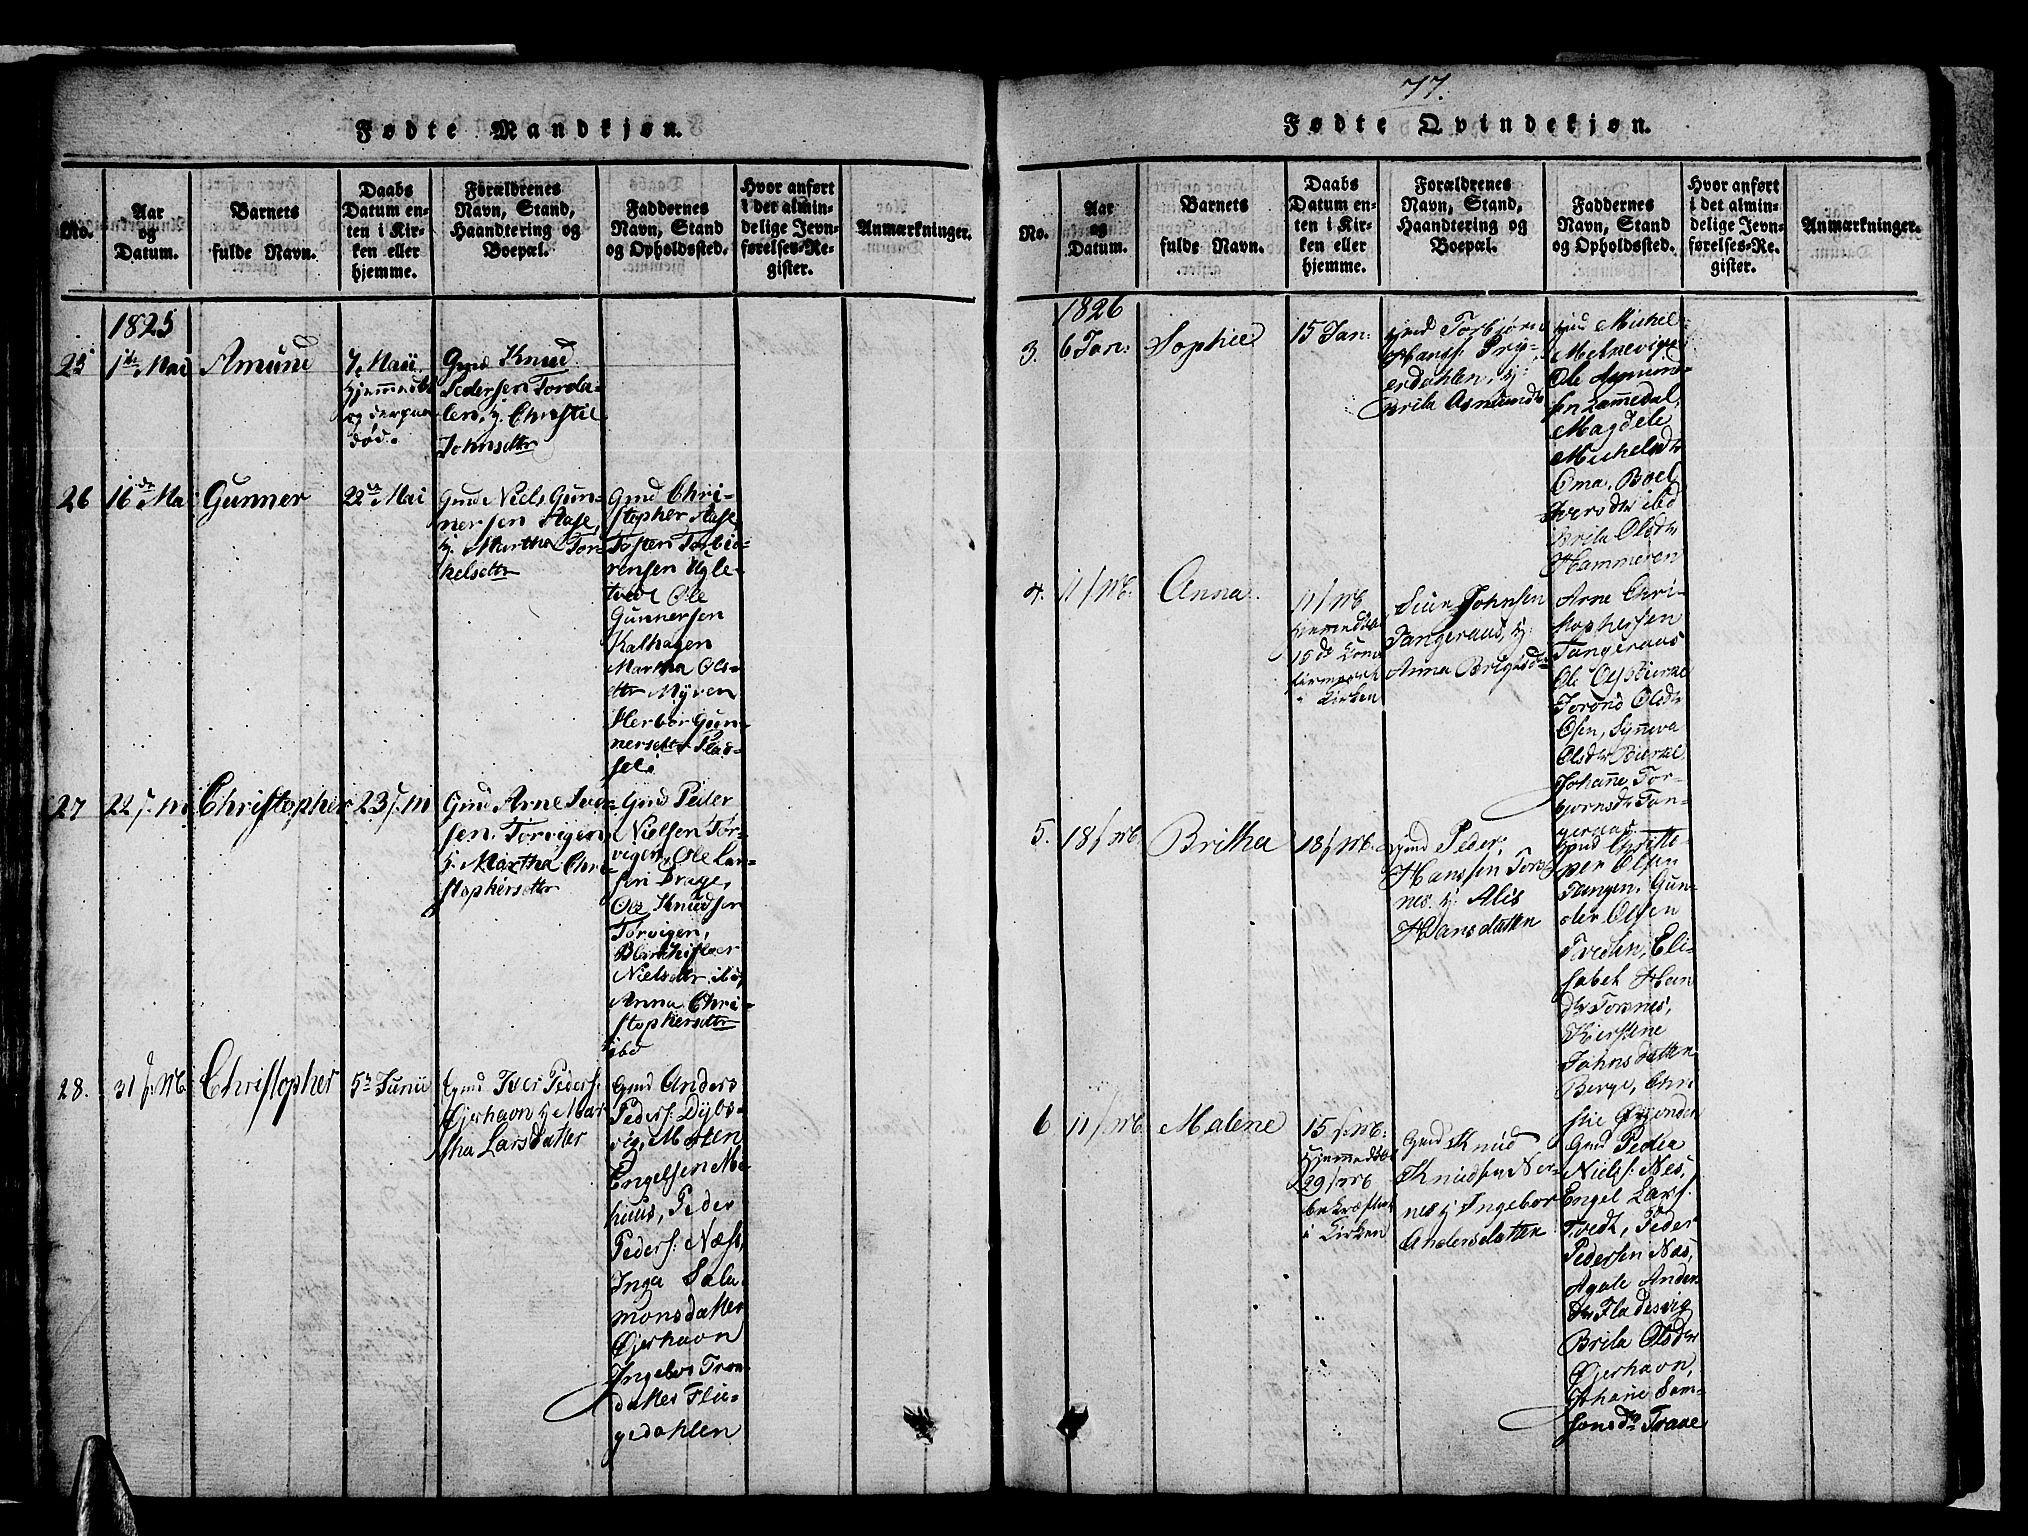 Fødte Mandkjøn.
No.
Aar
og
Datum.
Barnets
fulde Navn.
Daabs
Datum en-
ten i Kir-
ken eller
hjemme.
Forældrenes
Navn, Stand,
Haandtering og
Boepæl.
Faddernes
Navn, Stand
og Opholdssted.
Hvor anført
i det almin-
delige Jevn-
førelses-Re-
gister.
Anmærkninger.
1825
25
1ste Mai
Amund
7 Maii
hjemmedbt
og derpaa
død.
Gmd Knud
Pedersen Torda-
len, h. Christie
Johnsdttr
26
16de Mai
Gunner
22de Mai
Gmd Niels Gun-
nersen Aase,
h. Martha Tor-
kelsdttr
Gmd Chri-
stopher Aase,
Tosten Torbiø-
rensen Ugle-
tvedt Ole
Gunnersen
Kalhagen
Martha Ols-
dttr Myren
Herbor Gun-
nersdttr
27
22 f. m
Christopher
23 f. m
Gmd Arne Iver-
sen Torvigen
h. Martha Chri-
stophersdttr
Gmd Peder
Nielsen Tor-
vigen, Ole Lar-
sen Drage,
Ole Knudsen
Torvigen,
Nielsdttr ibd,
Anna Chri-
stophersdttr
ibd
28.
31 f. M.
Christopher
5te Junii
Gmd Iver Peders:
Øjerhavn h. Mar-
tha Larsdatter
Gmd Anders
Peders: Dybs-
vig, Morten
Engelsen Me-
huus, Peder
Peders: Næss,
Inga Salo-
monsdatter
Øjerhavn
Ingebor Tron-
datter Flu-
gedahlen
77.
Fødte Qvindekjøn.
No.
Aar
og
Datum.
Barnets
fulde Navn.
Daabs
Datum en-
ten i Kir-
ken eller
hjemme.
Forældrenes
Navn, Stand,
Haandtering og
Boepæl.
Faddernes
Navn, Stand
og Opholdssted.
Hvor anført
i det almin-
delige Jevn-
førelses-Re-
gister.
Anmærkninger.
1826
3.
6 Jan:
Sophie
15 Jan:
Gmd Torbjørn
Hansf. Try-
erdahlen, h:
Brita Asmundsdr
Gmd Michel
Melnevigen
Ole Asmund-
sen Lammedal,
Magdele
Michelsdr
Oma, Boel
Iversdr ibd
Brita Olsdr
Hammeren
4.
11 f. M.
Anna
11 f. M
hjemmedbt
15de
i Kirken
Siur Johnsen
Tangeraas, h:
Anna Brigtsdr
Arne Chri-
stophersen
Tangeraas
Ole
Torond Olsdr
Osen, Synneva
Olsdr
Johanne Tor-
bjørnsdr Tan-
geraas
5.
18 f. M.
Britha
18 f. M.
Gmd Peder
Hanssen Tors-
nes. h: Alis
Hansdatter
Gmd Christo-
per Olsen
Tangen, Gun-
der Olsen
Tveden, Eli-
sabet Han
dr Torsnes,
Kierstine
Johnsdatter
Berge, Chri
stie
6
11 f. M
Malene
15 f. M:
hjemmedbt
29 f. M
bekræftet
i Kirken
Gmd Knud
Knudsen Ner-
nes h Ingebor
Andersdatter
Gmd Peder
Niels: Nes,
Engel Lars:
Tvedt, Peder
Pedersen Nes,
Agate Anders
dr Fladesvig
Brita Olsdr
Øjerhavn,
Johane Sam-
sonsdr Traae